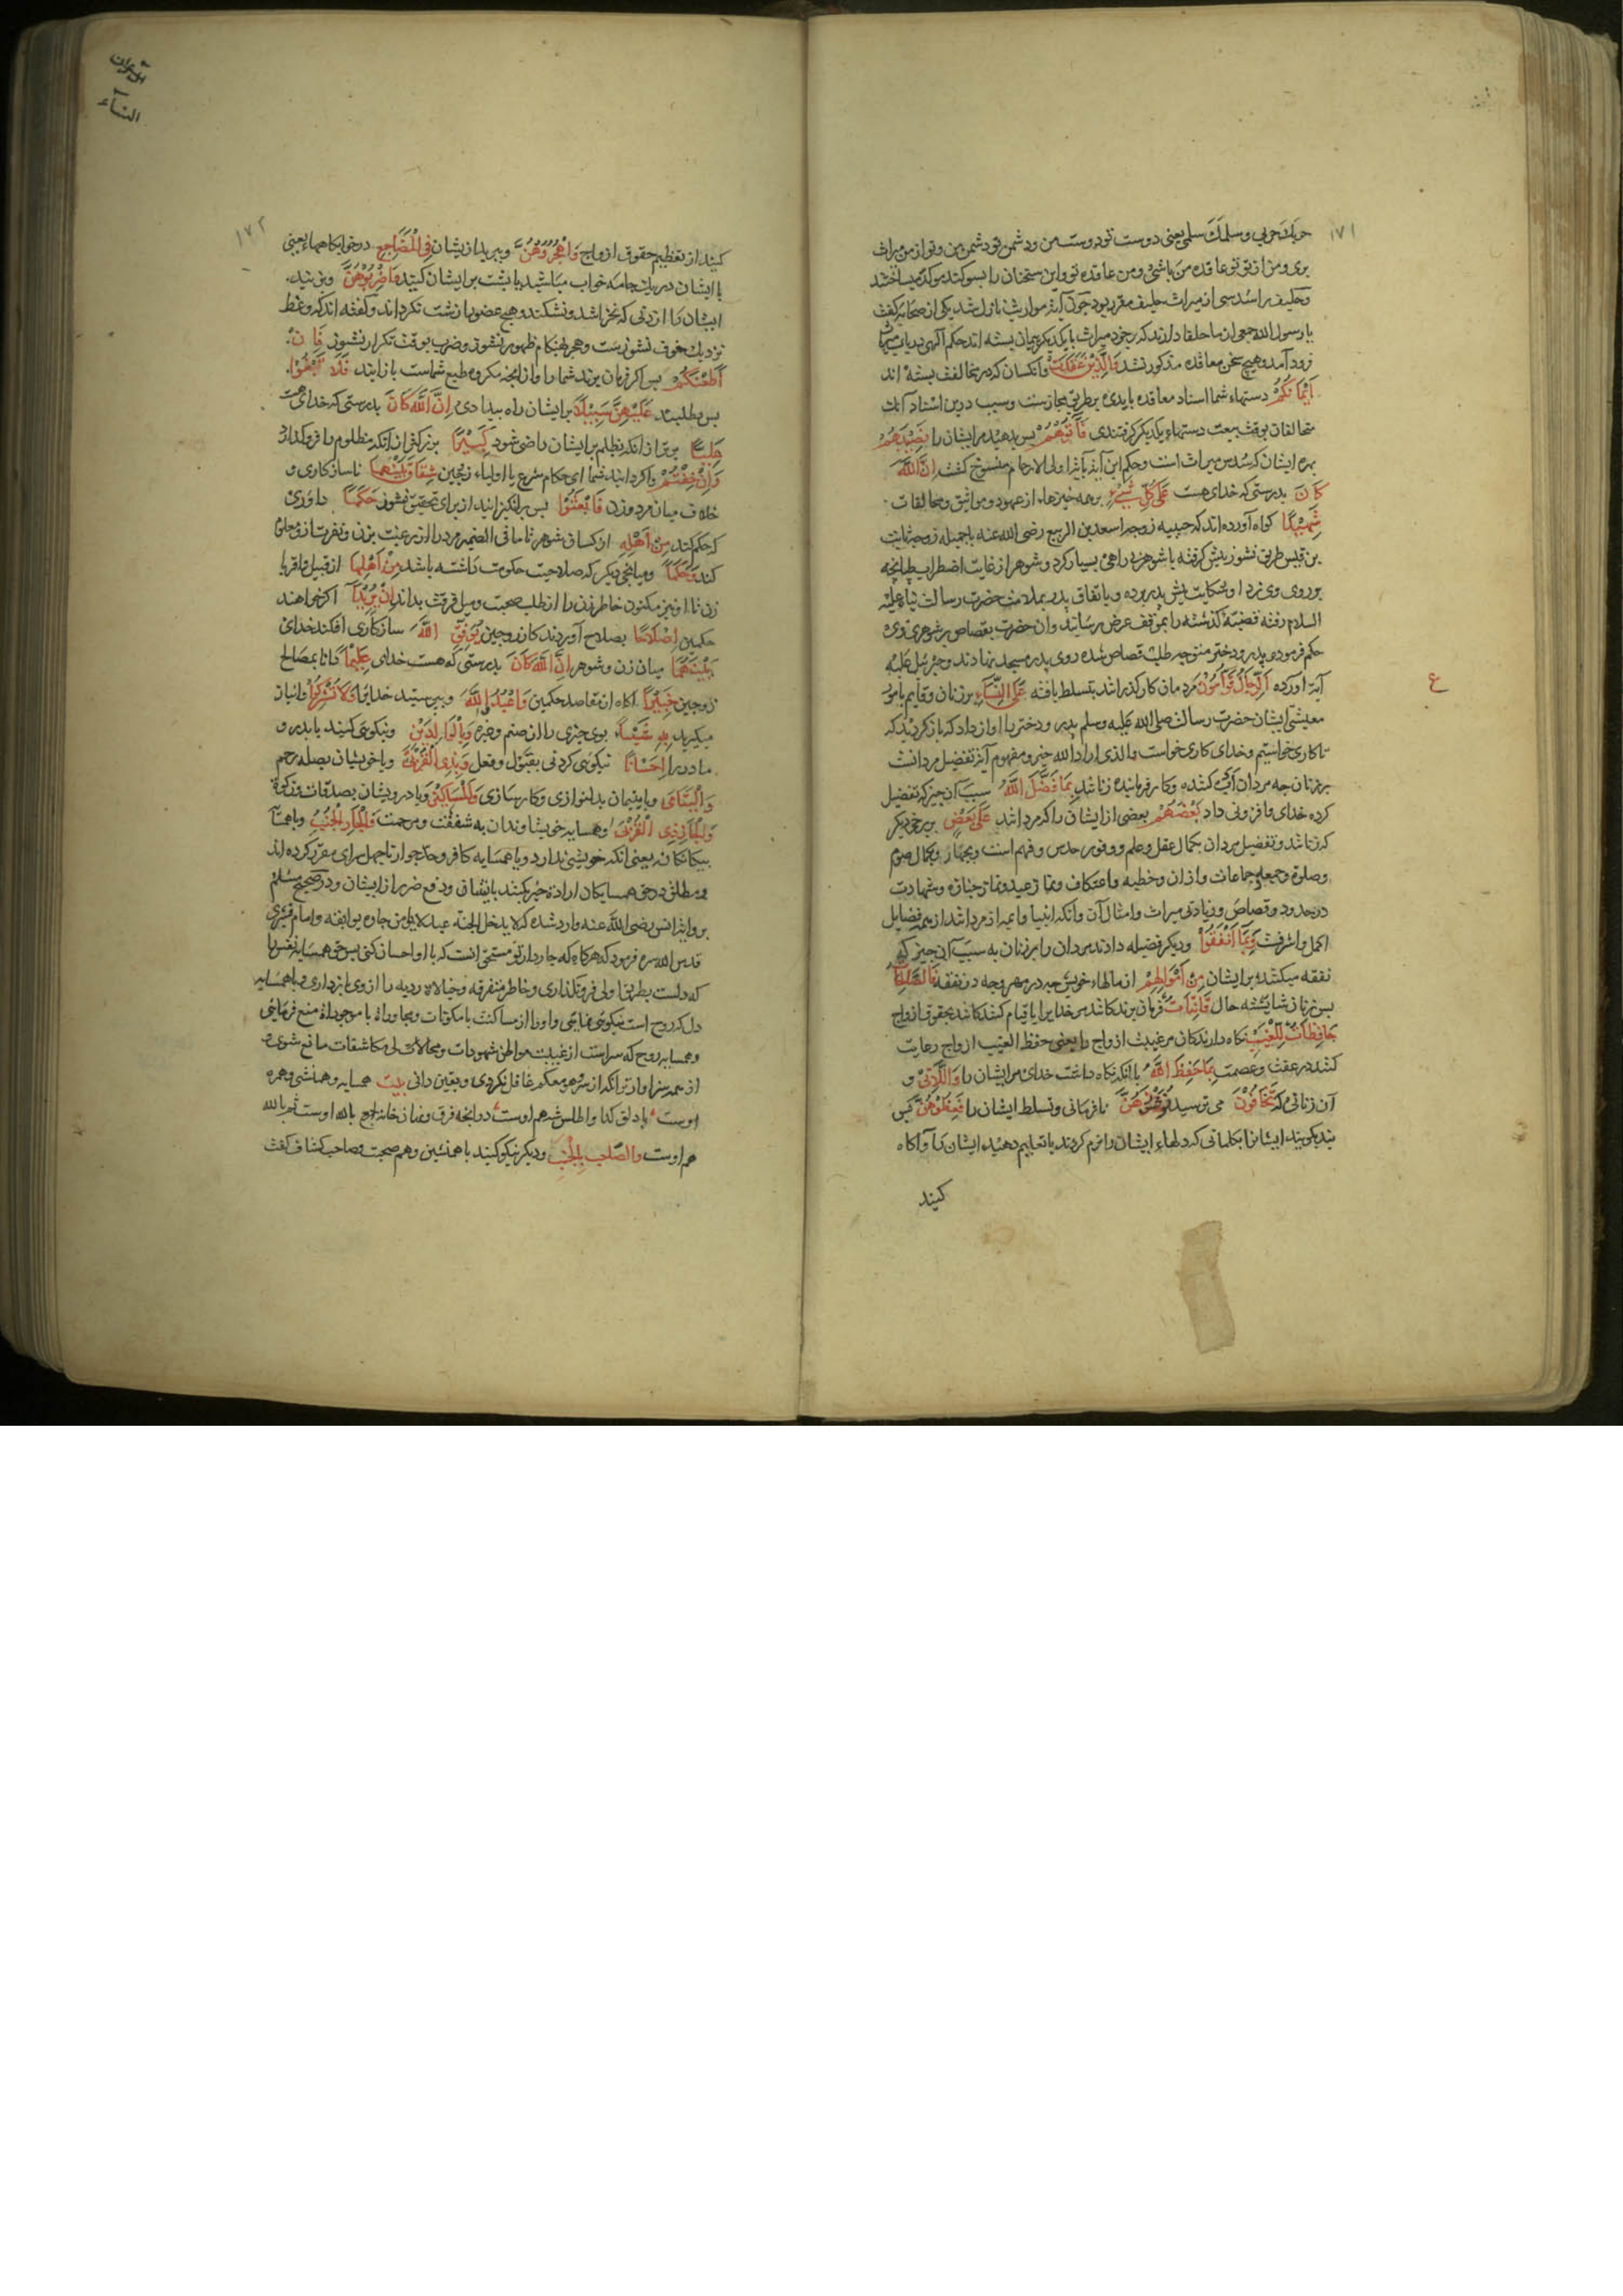 ١٧١
حربک حربی و سلمک سلمی یعنی دوست تو دوست من و دشمن تو دشمن من و تو از من میراث
بری و من از تو تو عاقده من باشی و من عاقده تو و این سخنان را بسوکند موکد میساختند
و حلیف را سدسی از میراث حلیف مقرر بود چون آیة مواریث نازل شد یکی از صحابه کفت
یا رسول الله جمعی از ما حلفا دارند که بر خود میراث با یکدیکر پیمان بسته اند حکم الهی در باب میراث
زود آمده و هیچ سخن معاقده مذکور نشد وَالَّذِینَ عَقَدَتْ و انکسان که در مخالفت بسته اند
اَیْمَانُکُمْ دستهاء شما اسناد معاقده بایدی بر طریق مجازست و سبب درین اسناد آنک
متحالفان بوقت بیعت دستهاء یکدیکر کرفتندی فَآتُوهُمْ بس بدهید مر ایشان را نَصِیبَهُمْ
بهره ایشان که سدس میراث است و حکم این آیه بآیة اولی الارحام منسوخ کشت اِنَّ اللّٰهَ
کَانَ بدرستی که خدای هست عَلٰی کُلِّ شَیْءٍ بر همه چیزها از عهود و مواثیق و مخالفات
شَهِیدًا کواه آورده اند که حبیبه زوجه اسعد بن الربیع رضی الله عنه یا جمیله زوجه ثابت
بن قیس طریق نشوز پیش کرفته با شوهر بی راهی بسیار کرد و شوهر از غایت اضطراب طپانچه
بر روی وی زد او شکایت پیش پدر برده و باتفاق پدر بملازمت حضرت رسالت پناه علیه
السلام رفته قضیّه کذشته را بموقف عرض رسانید و ان حضرت بقصاص بر شوهر وی
حکم فرموده پدر و دختر متوجه طلب قصاص شده روی بدر مسجد نهادند و جبرئیل علیه
آیة اورده اَلرِّجَالُ قَوَّامُونَ مردمان کارکذرانند تسلط یافته عَلَی النِّسَاءِ بر زنان و قایم بامور
ع
معیشت ایشان حضرت رسالت صلی الله علیه وسلم پدر و دختر را اواز داد که باز کردید که
ما کاری خواستیم و خدای کاری خواست والذی اراد الله خیر و مفهوم آیة تفضیل مردانست
بر زنان چه مردان کننده و کار فرماینده زنانند بِمَا فَضَّلَ اللّٰهُ بسبب آن چیز که تفضیل
کرده خدای و افزونی داد بَعْضَهُمْ بعضی از ایشان را که مردانند عَلٰی بَعْضٍ بر برخی دیکر
که زنانند و تفضیل مردان بکمال عقل و علم و وفور حدس و فهم است و بجهاد و بکمال صوم
و صلوة و جمعه و جماعات و اذان و خطبه و اعتکاف و نماز عید و نماز جنازه و شهادت
در حدود و قصاص و زیادتی میراث و امثال آن و انکه انبیا و ایمه از مردانند از همه فضایل
اکمل و اشرفست وَبِمَا اَنْفَقُوا و دیکر فضیله دادند مردان را بر زنان به سبب آن چیز که
نفقه میکنند بر ایشان مِنْ اَمْوَالِهِمْ از مالهاء خویش چه در مهر و چه در نفقه فَالصَّالِحَاتُ
بس زنان شایسته حال قَانِتَاتٌ فرمان برندکانند مر خدایرا یا قیام کنندکانند بحقوق ازواج
حَافِظَاتٌ لِلْغَیْبِ نکاه دارندکان مر غیبت ازواج را یعنی حفظ الغیب ازواج رعایت
کنند در عفت و عصمت بِمَا حَفِظَ اللّٰهُ با انکه نکاه داشت خدای مر ایشان را وَاللَّاتِی و
آن زنانی که تَخَافُونَ می ترسید نُشُوزَهُنَّ نافرمانی و تسلط ایشان را فَعِظُوهُنَّ بس
پند کویید ایشانرا بکلماتی که دلهاء ایشان را نرم کردند یا تعلیم دهید ایشان را و آکاه
کنید
النساء
١٧٢
کنید از تعظیم حقوق ازواج وَاهْجُرُوهُنَّ و ببرید از یشان فِی الْمَضَاجِعِ در خوابکاهها یعنی
با ایشان در یک جامه خواب مباشید یا پشت بر ایشان کنید وَاضْرِبُوهُنَّ و بزنید
ایشان را زدنی که نخراشد و نشکند و هیچ عضو را زشت نکرداند و کفته اند که وعظ
نزدیک خوف نشوزست و هجر بهنکام ظهور نشوز و ضرب بوقت تکرار نشوز فَاِنْ
اَطَعْنَکُمْ بس اکر فرمان برند شما را و از انچه مکروه طبع شماست باز ایند فَلَا تَبْغُوا
بس مطلبید عَلَیْهِنَّ سَبِیلًا بر ایشان راه بیدادی اِنَّ اللّٰهَ کَانَ بدرستی که خدای هست
عَلِیًّا برتر از انکه بظلم بر ایشان راضی شود کَبِیرًا بزرکتر از انکه مظلوم را فروکذارد
وَاِنْ خِفْتُمْ و اکر دانید شما ای حکام شرع یا اولیاء زوجین شِقَاقَ بَیْنِهِمَا ناسازکاری و
خلاف میان مرد و زن فَابْعَثُوا بس برانکیزانید از برای تحقیق نشوز حَکَمًا داوری
که حکم کند مِنْ اَهْلِهِ از کسان شوهر تا ما فی الضمیر مرد را از رغبت بزن و نفرت از و معلوم
کند وَحَکَمًا و میانجی دیکر که صلاحیت حکومت داشته باشد مِنْ اَهْلِهَا از قبیل و اقربا
زن تا او نیز مکنون خاطر زن را از طلب صحبت و میل فرقت بداند اِنْ یُرِیدَا اکر خواهند
حکمین اِصْلَاحًا بصلاح آوردند کار زوجین یُوَفِّقِ اللّٰهُ سازکاری افکند خدای
بَیْنَهُمَا میان زن و شوهر اِنَّ اللّٰهَ کَانَ بدرستی که هست خدای عَلِیمًا دانا بمصالح
زوجین خَبِیرًا آکاه از مقاصد حکمین وَاعْبُدُوا اللّٰهَ و بپرستید خدایرا وَلَا تُشْرِکُوا و انباز
مکیرید بِهِ شَیْئًا بوی چیزی را از صنم و غیره وَبِالْوَالِدَیْنِ و نیکویی کنید با پدر و
مادر را اِحْسَانًا نیکویی کردنی بقول و فعل وَبِذِی الْقُرْبٰی و با خویشان بصله رحم
وَالْیَتَامٰی و با یتیمان بدلنوازی و کارسازی وَالْمَسَاکِینِ و با درویشان بصدقات و زکوة
وَالْجَارِ ذِی الْقُرْبٰی و همسایه خویشاوندان به شفقت و مرحمت وَالْجَارِ الْجُنُبِ و با همسایه
بیکانکان یعنی انکه خویشی ندارد و یا همسایه کافر و حد جوار تا چهل سرای مقرر کرده اند
و مطلق در حق همسایکان اراده خیر بکنند باتفاق و دفع ضرر از ایشان و در صحیح مسلم
بروایت انس رضی الله عنه وارد شده که لا یدخل الجنة عبد لا یامن جاره بوایقه و امام قشیری
قدس الله سره فرمود که هرکاه که جار دار تو مستحق انست که با او احسان کنی بس حق همسایه نفس را
که دلست بطریق اولی فرونکذاری و خاطر متفرقه و خیالات ردیه را از وی بازداری و با همسایه
دل که روح است نیکویی نمایی و او را از مساکنت با مکونات و مجاورة با موجودات منع فرمایی
و همسایه روح که سر است از غیبت مواطن شهودات و محالات لی مکاشفات مانع شوی
از همه سزاوارتر انکه از سر و هو معکم غافل نکردی و بیقین دانی بیت همسایه و همنشین و همره
اوست ٭ با دلق کدا و اطلس شه هم اوست ٭ در انجمن فرق و نهان خانه جمع بالله اوست ثم بالله
هم اوست وَالصَّاحِبِ بِالْجَنْبِ و دیکر نیکو کنید با همنشین و هم صحبت و صاحب کشاف کفت